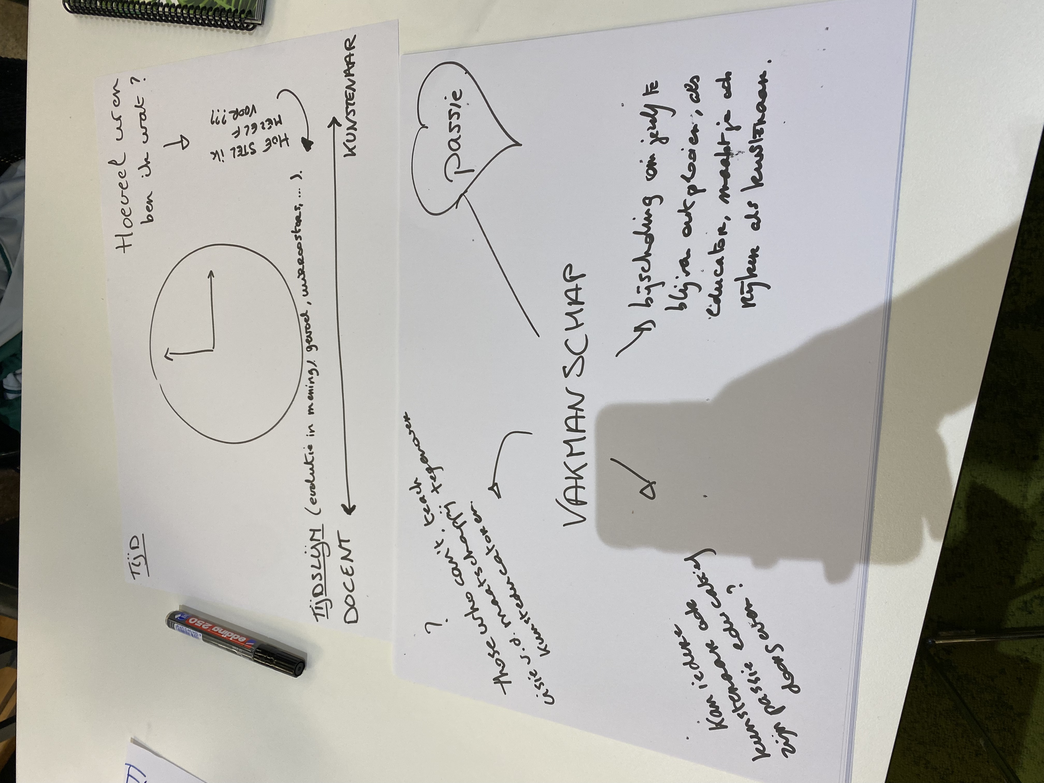 TIJD
Hoeveel uren
ben ik wat?
HOE STEL ik
MEZELF
VOOR???
TIJDSLIJN (evolutie in mening, gevoel, ...).
DOCENT
KUNSTENAAR
passie
VAKMANSCHAP
?
those who can't, teach
visie v.d. maatschappij tegenover
kunsteducatoren.
bijscholing om jezelf te
blijven ontplooien, als
educator, maakt je ook
rijker als kunstenaar.
Kan iedere
kunstenaar ook
kunsteducatief
zijn passie
doorgeven?
edding 250